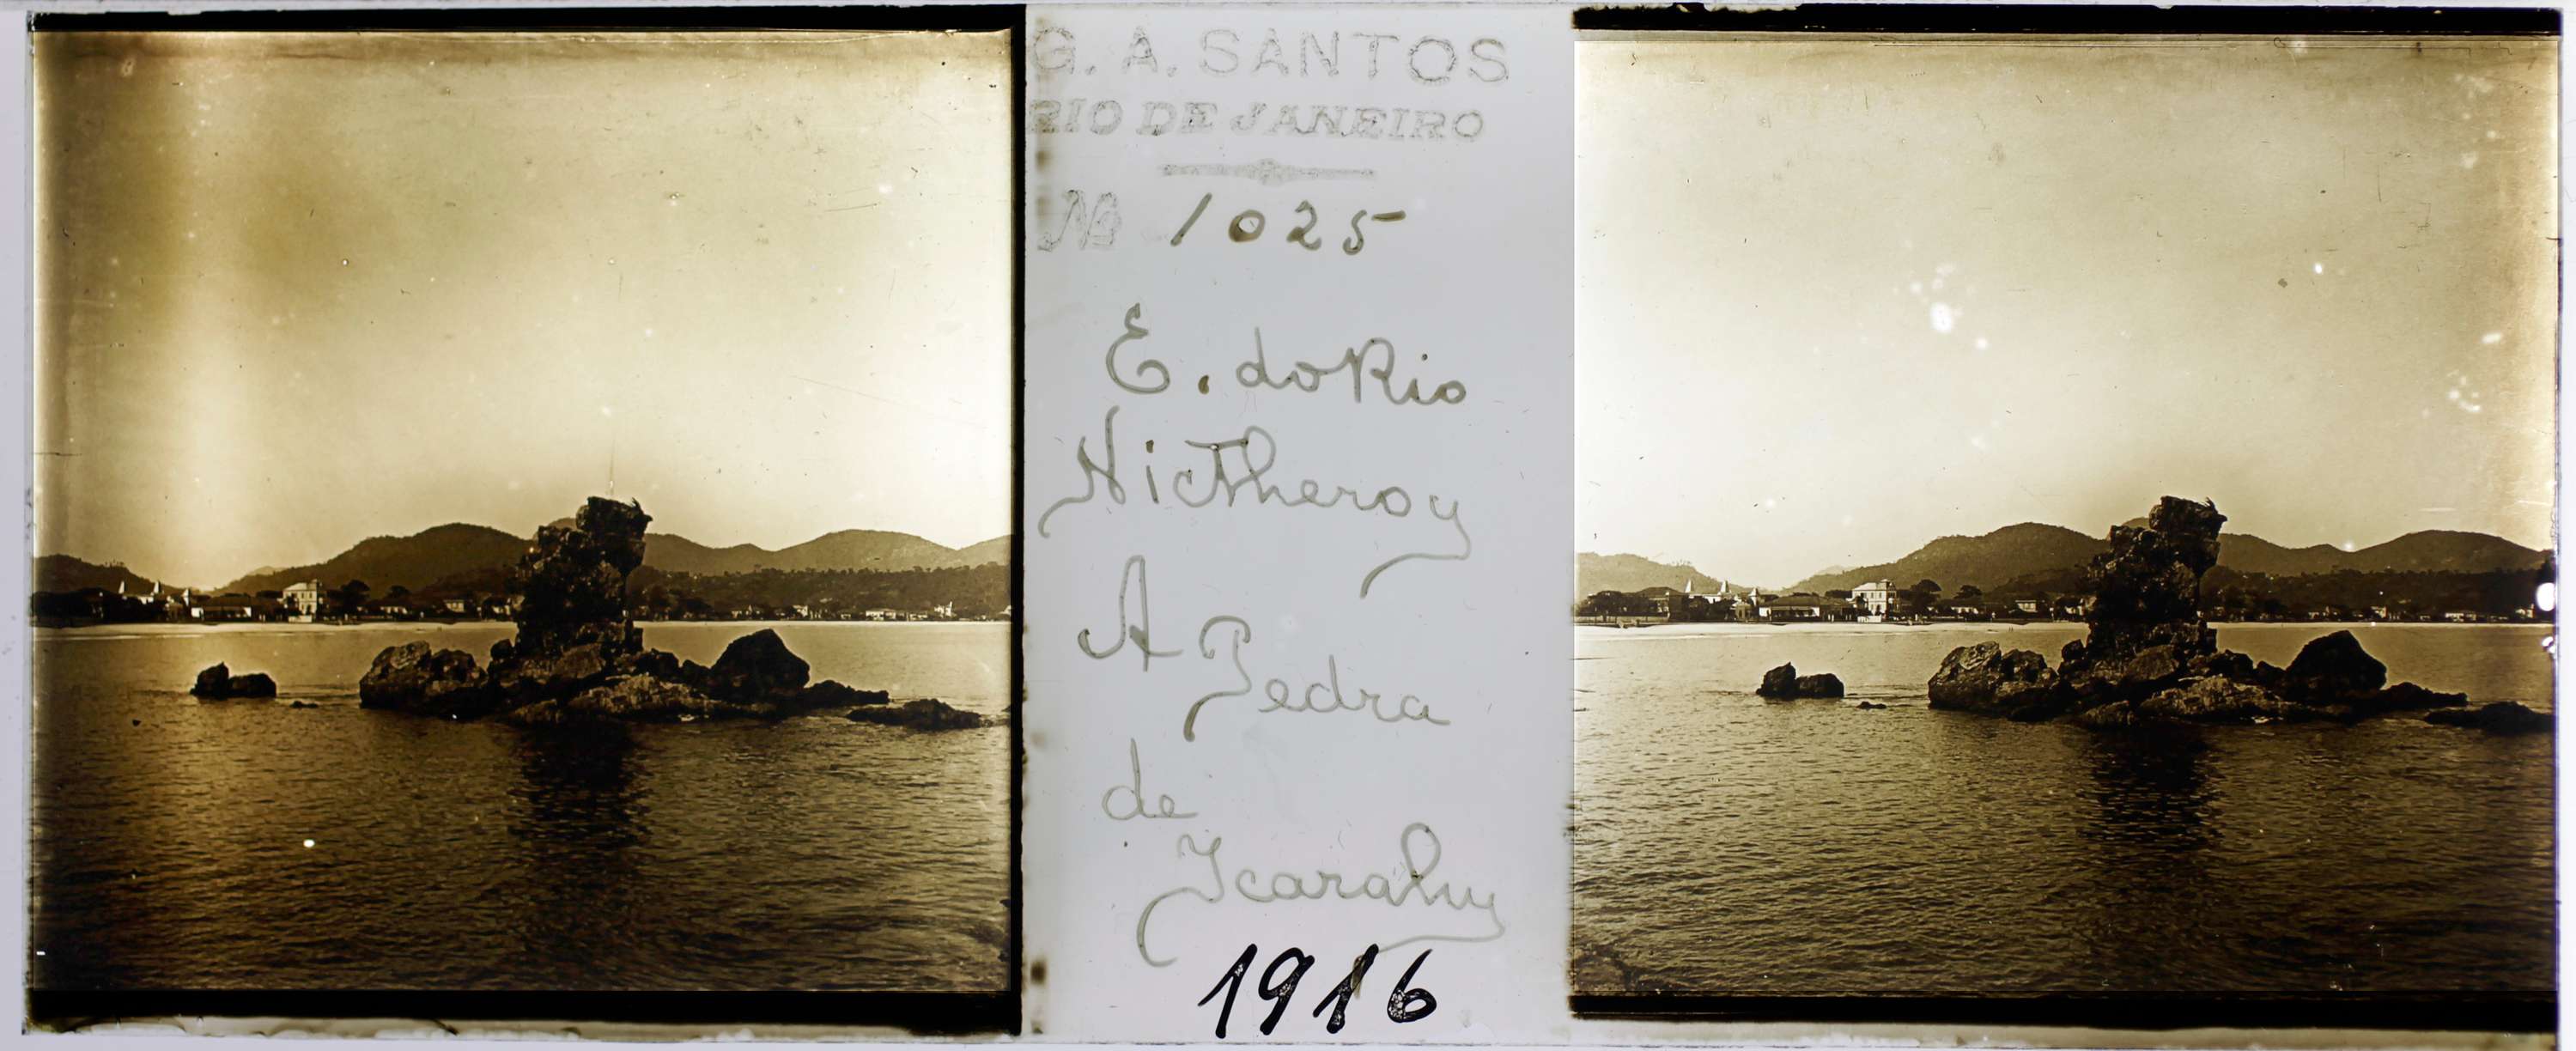 G. A. SANTOS
RIO DE JANEIRO
Nº 1025
E. do Rio
Nictheroy
A Pedra
de
Icarahy
1916